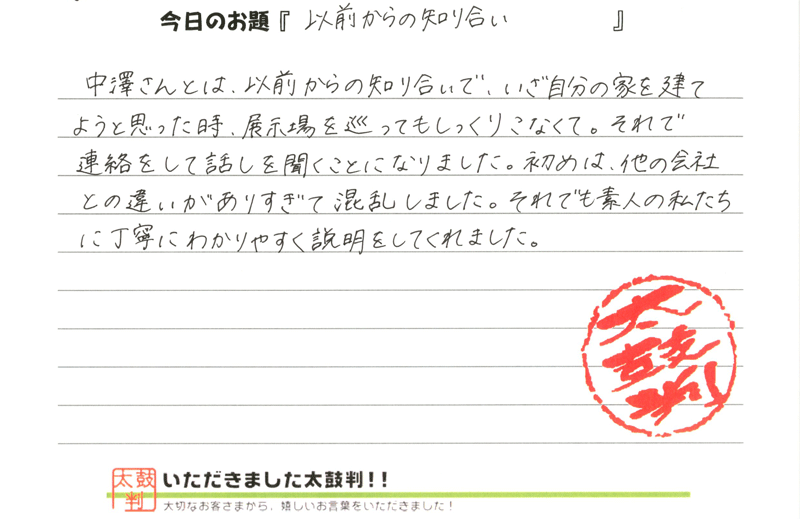 今日のお題『 以前からの知り合い 』
中澤さんとは、以前からの知り合いで、いざ自分の家を建て
ようと思った時、展示場を巡ってもしっくりこなくて。それで
連絡をして話しを聞くことになりました。初めは、他の会社
との違いがありすぎて混乱しました。それでも素人の私たち
に丁寧にわかりやすく説明をしてくれました。
太鼓判
太鼓判
いただきました太鼓判!!
大切なお客さまから、嬉しいお言葉をいただきました!